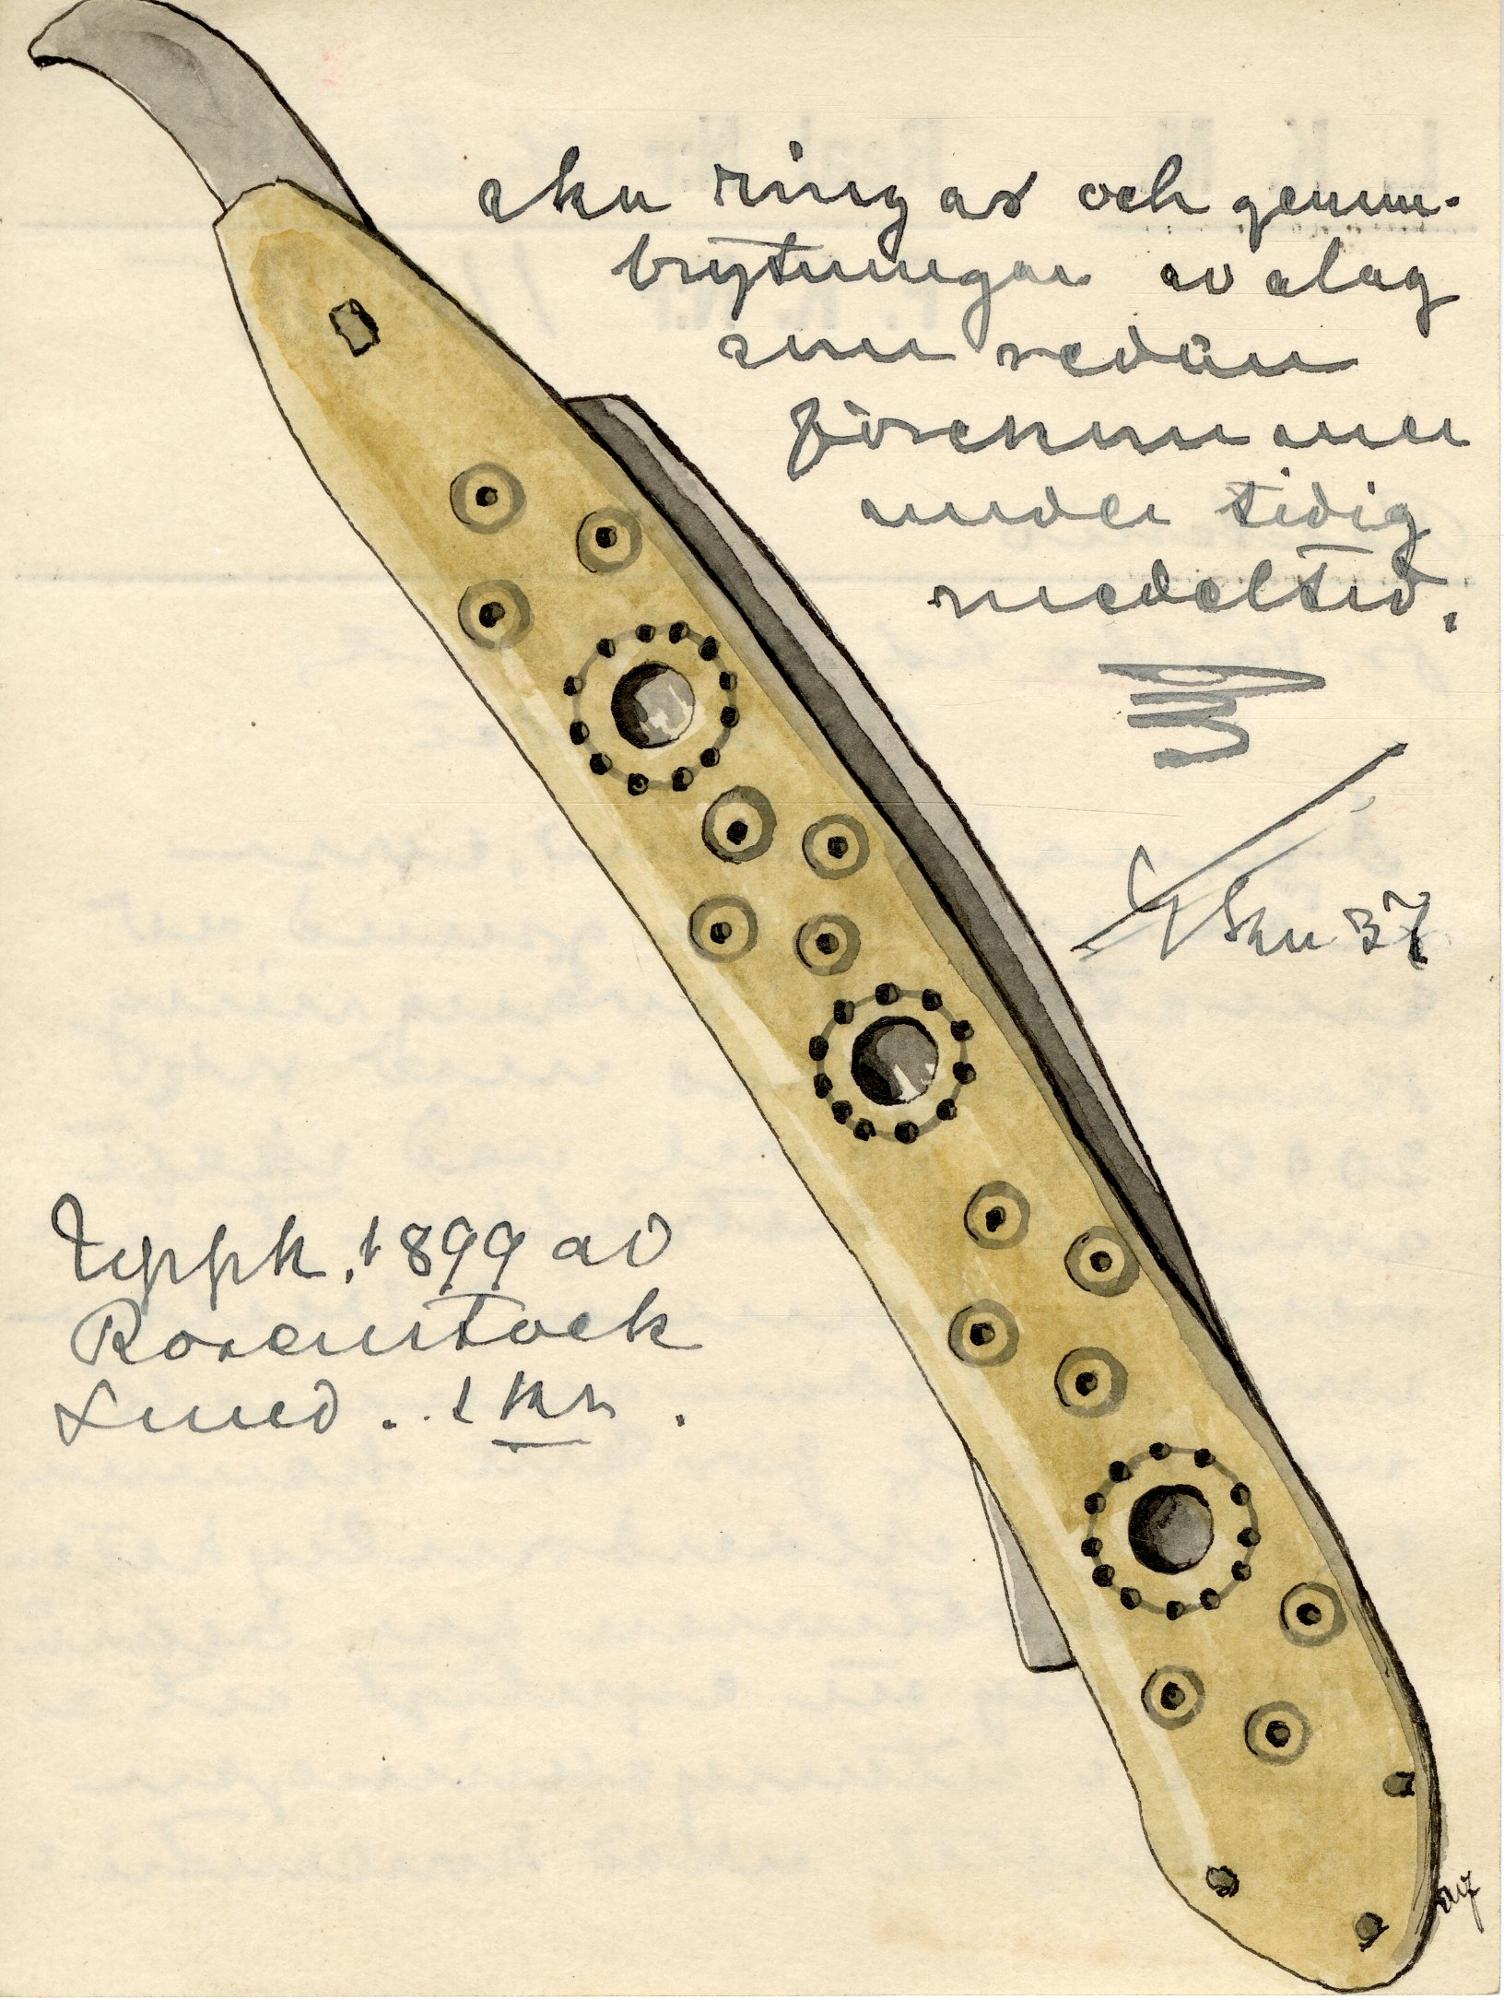 skuringar och genom-
brytningar av slag
som redan
förekommer
under tidig
medeltid.
37
Uppk. 1899 av
Rosenstock
Lund. . 1 Kr .